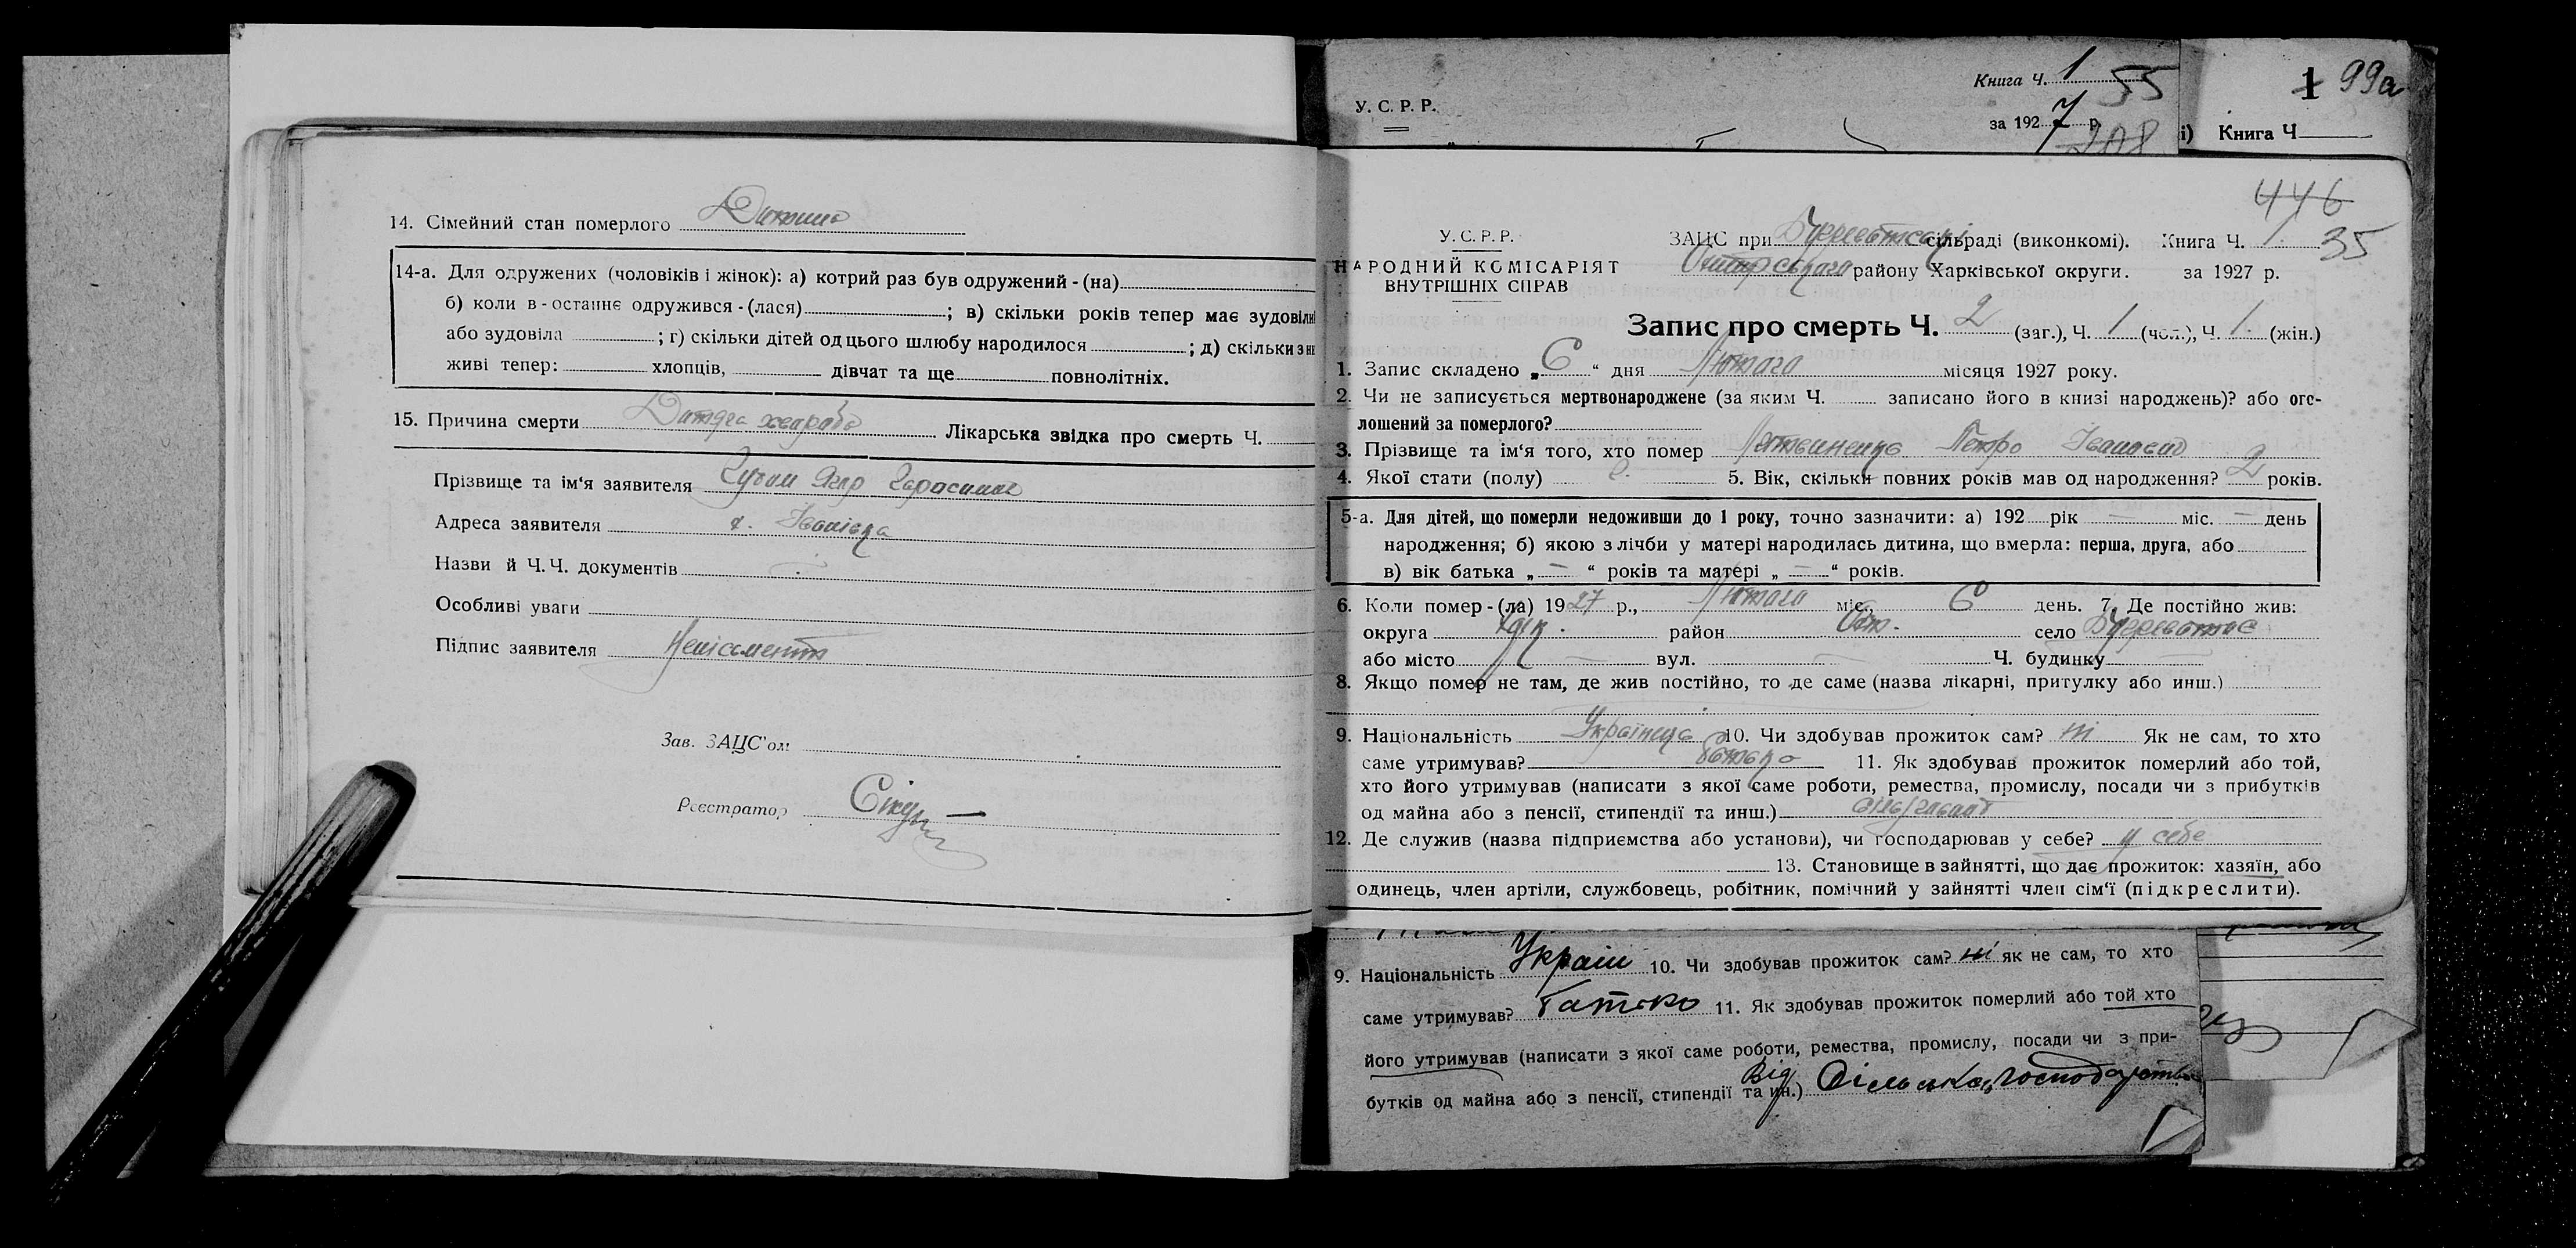 14. Сімейний стан померлого Дитина
14-а. Для одружених (чоловіків і жінок): а) котрий раз був одружений - (на)
б) коли в - останнє одружився - (лася) ; в) скільки років тепер має зудовілий
або зудовіла ; г) скільки дітей од цього шлюбу народилося ; д) скільки з ни
живі тепер: хлопців, дівчат та ще повнолітніх.
15. Причина смерти Дитяча хвороба Лікарська звідка про смерть Ч.
Прізвище та ім'я заявителя
Адреса заявителя х. Іванівка
Назви й Ч. Ч. документів
Особливі уваги
Підпис заявителя Неписьменний
Зав. ЗАЦС'ом
Реєстратор
Книга Ч. 1 55
У. С. Р. Р.
за 1927 р.
208
1 99а
і) Книга Ч
446
35
У. С. Р. Р. ЗАЦС при сільраді (виконкомі). Книга Ч. 1
НАРОДНИЙ КОМІСАРІЯТ району Харківської округи. за 1927 р.
ВНУТРІШНІХ СПРАВ
Запис про смерть Ч. 2 (заг.), Ч. 1 (чол.), Ч. 1 (жін.)
1. Запис складено „ 6 “ дня Лютого місяця 1927 року.
2. Чи не записується мертвонароджене (за яким Ч. записано його в книзі народжень)? або ого-
лошений за померлого?
3. Прізвище та ім'я того, хто помер Литвиненко Петро Іванович
4. Якої стати (полу) ч. 5. Вік, скільки повних років мав од народження? 2 років.
5-а. Для дітей, що померли недоживши до 1 року, точно зазначити: а) 192 рік — міс. — день
народження; б) якою з лічби у матері народилась дитина, що вмерла: перша, друга, або
в) вік батька „ — “ років та матері „ — “ років.
6. Коли помер - (ла) 1927 р., Лютого міс., 6 день. 7. Де постійно жив:
округа Харк. район село
або місто — вул. — Ч. будинку —
8. Якщо помер не там, де жив постійно, то де саме (назва лікарні, притулку або инш.)
9. Національність Українець 10. Чи здобував прожиток сам? ні Як не сам, то хто
саме утримував? батько 11. Як здобував прожиток померлий або той,
хто його утримував (написати з якої саме роботи, ремества, промислу, посади чи з прибутків
од майна або з пенсії, стипендії та инш.)
12. Де служив (назва підприємства або установи), чи господарював у себе? у себе
13. Становище в зайнятті, що дає прожиток: хазяїн, або
одинець, член артіли, службовець, робітник, помічний у зайнятті член сім'ї (підкреслити).
9. Національність Україн 10. Чи здобував прожиток сам? ні як не сам, то хто
саме утримував? Батько 11. Як здобував прожиток померлий або той хто
його утримував (написати з якої саме роботи, ремества, промислу, посади чи з при-
бутків од майна або з пенсії, стипендії та ин.) Від Сільська господарства